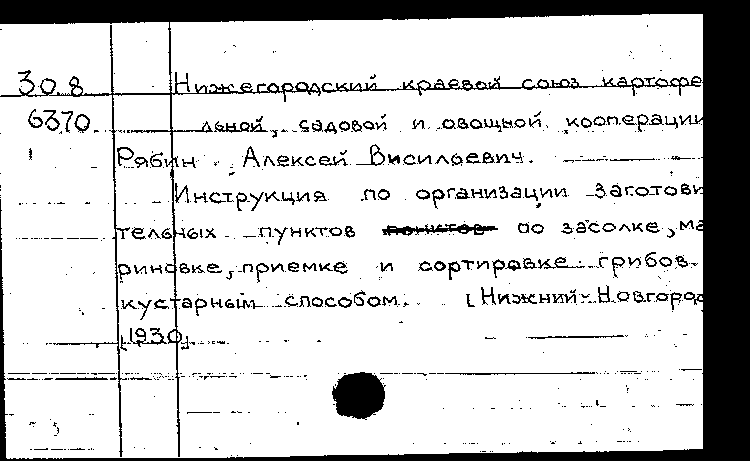 30.8 Нижегородский краевой союз картофе
6370. льной, садовой и овощной кооперации
Рябин Алексей Висильевич.
Инструкция по организации заготови
тельных пунктов по засолке, ма
риновке, приемке и сортировке грибов
кустарным способом. [Нижний-Новгород
[1930].